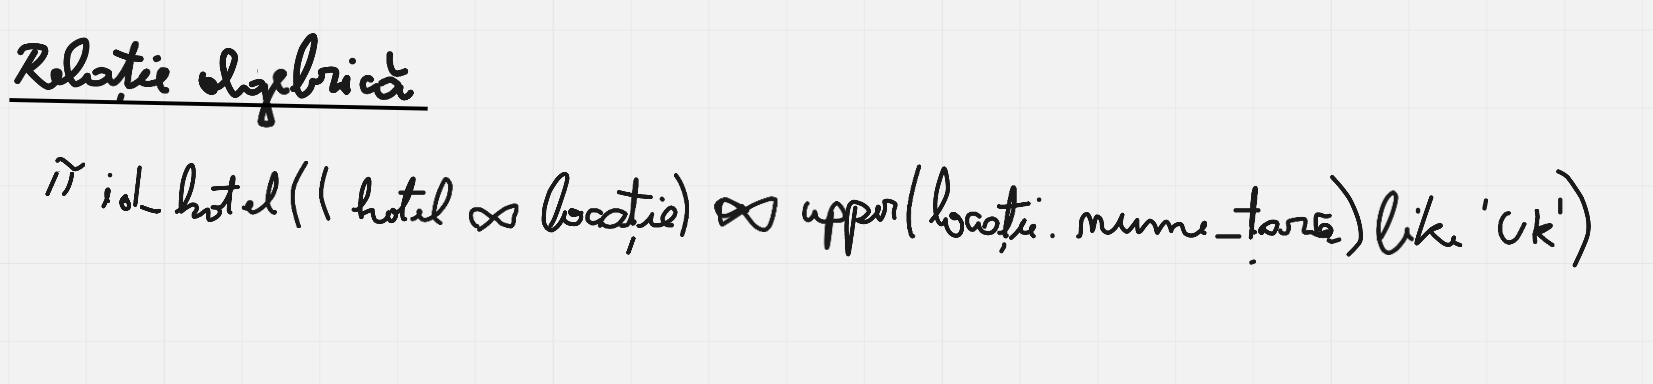 Relație algebrică
π id_hotel((hotel ∞ locație) ∞ upper(locație.nume_tara) like 'UK')